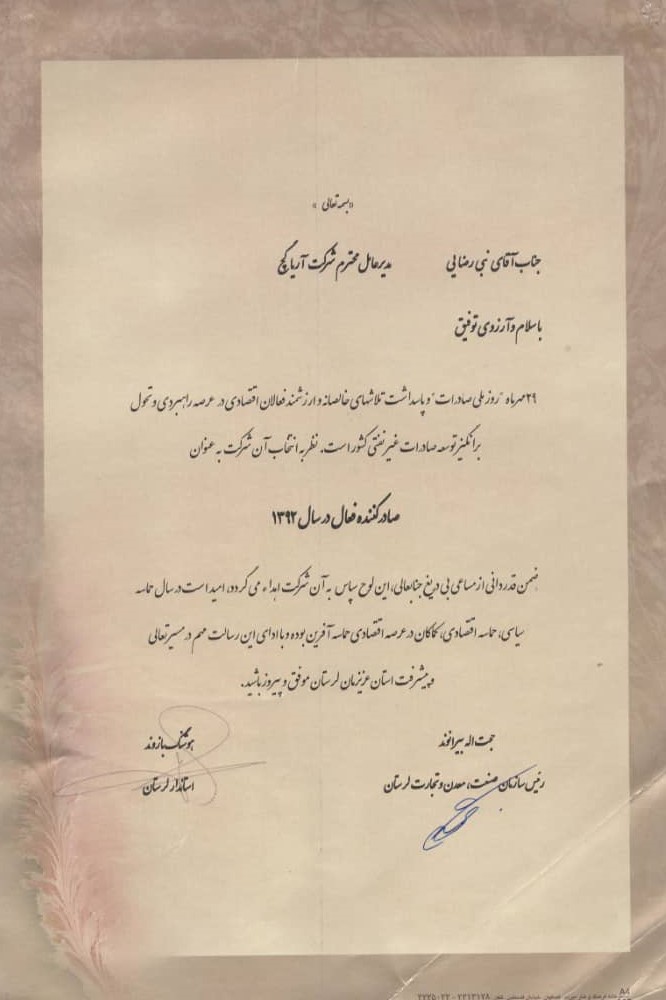 «بسمه تعالی»
جناب آقای نبی رضایی مدیرعامل محترم شرکت آریا گچ
با سلام و آرزوی توفیق
۲۹ مهرماه "روز ملی صادرات" و پاسداشت تلاشهای خالصانه و ارزشمند فعالان اقتصادی در عرصه راهبردی و تحول
برانگیز توسعه صادرات غیر نفتی کشور است. نظر به انتخاب آن شرکت به عنوان
صادر کننده فعال در سال ۱۳۹۲
ضمن قدردانی از مساعی بی دریغ جنابعالی، این لوح سپاس به آن شرکت اهداء می گردد، امید است در سال حماسه
سیاسی، حماسه اقتصادی، کماکان در عرصه اقتصادی حماسه آفرین بوده و با ادای این رسالت مهم در مسیر تعالی
و پیشرفت استان عزیزمان لرستان موفق و پیروز باشید.
حجت اله بیرانوند
رئیس سازمان صنعت، معدن و تجارت لرستان
هوشنگ بازوند
استاندار لرستان